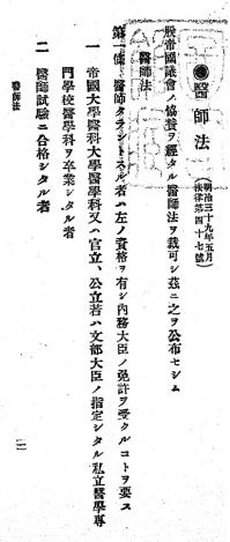 ●醫師法 (明治三十九年五月法律第四十七號)
朕帝國議會ノ協賛ヲ經タル醫師法ヲ裁可シ茲ニ之ヲ公布セシム
醫師法
第一條 醫師タラントスル者ハ左ノ資格ヲ有シ内務大臣ノ免許ヲ受クルコトヲ要ス
一 帝國大學醫科大學醫學科又ハ官立、公立若ハ文部大臣ノ指定シタル私立醫學專
門學校醫學科ヲ卒業シタル者
二 醫師試驗ニ合格シタル者
醫師法